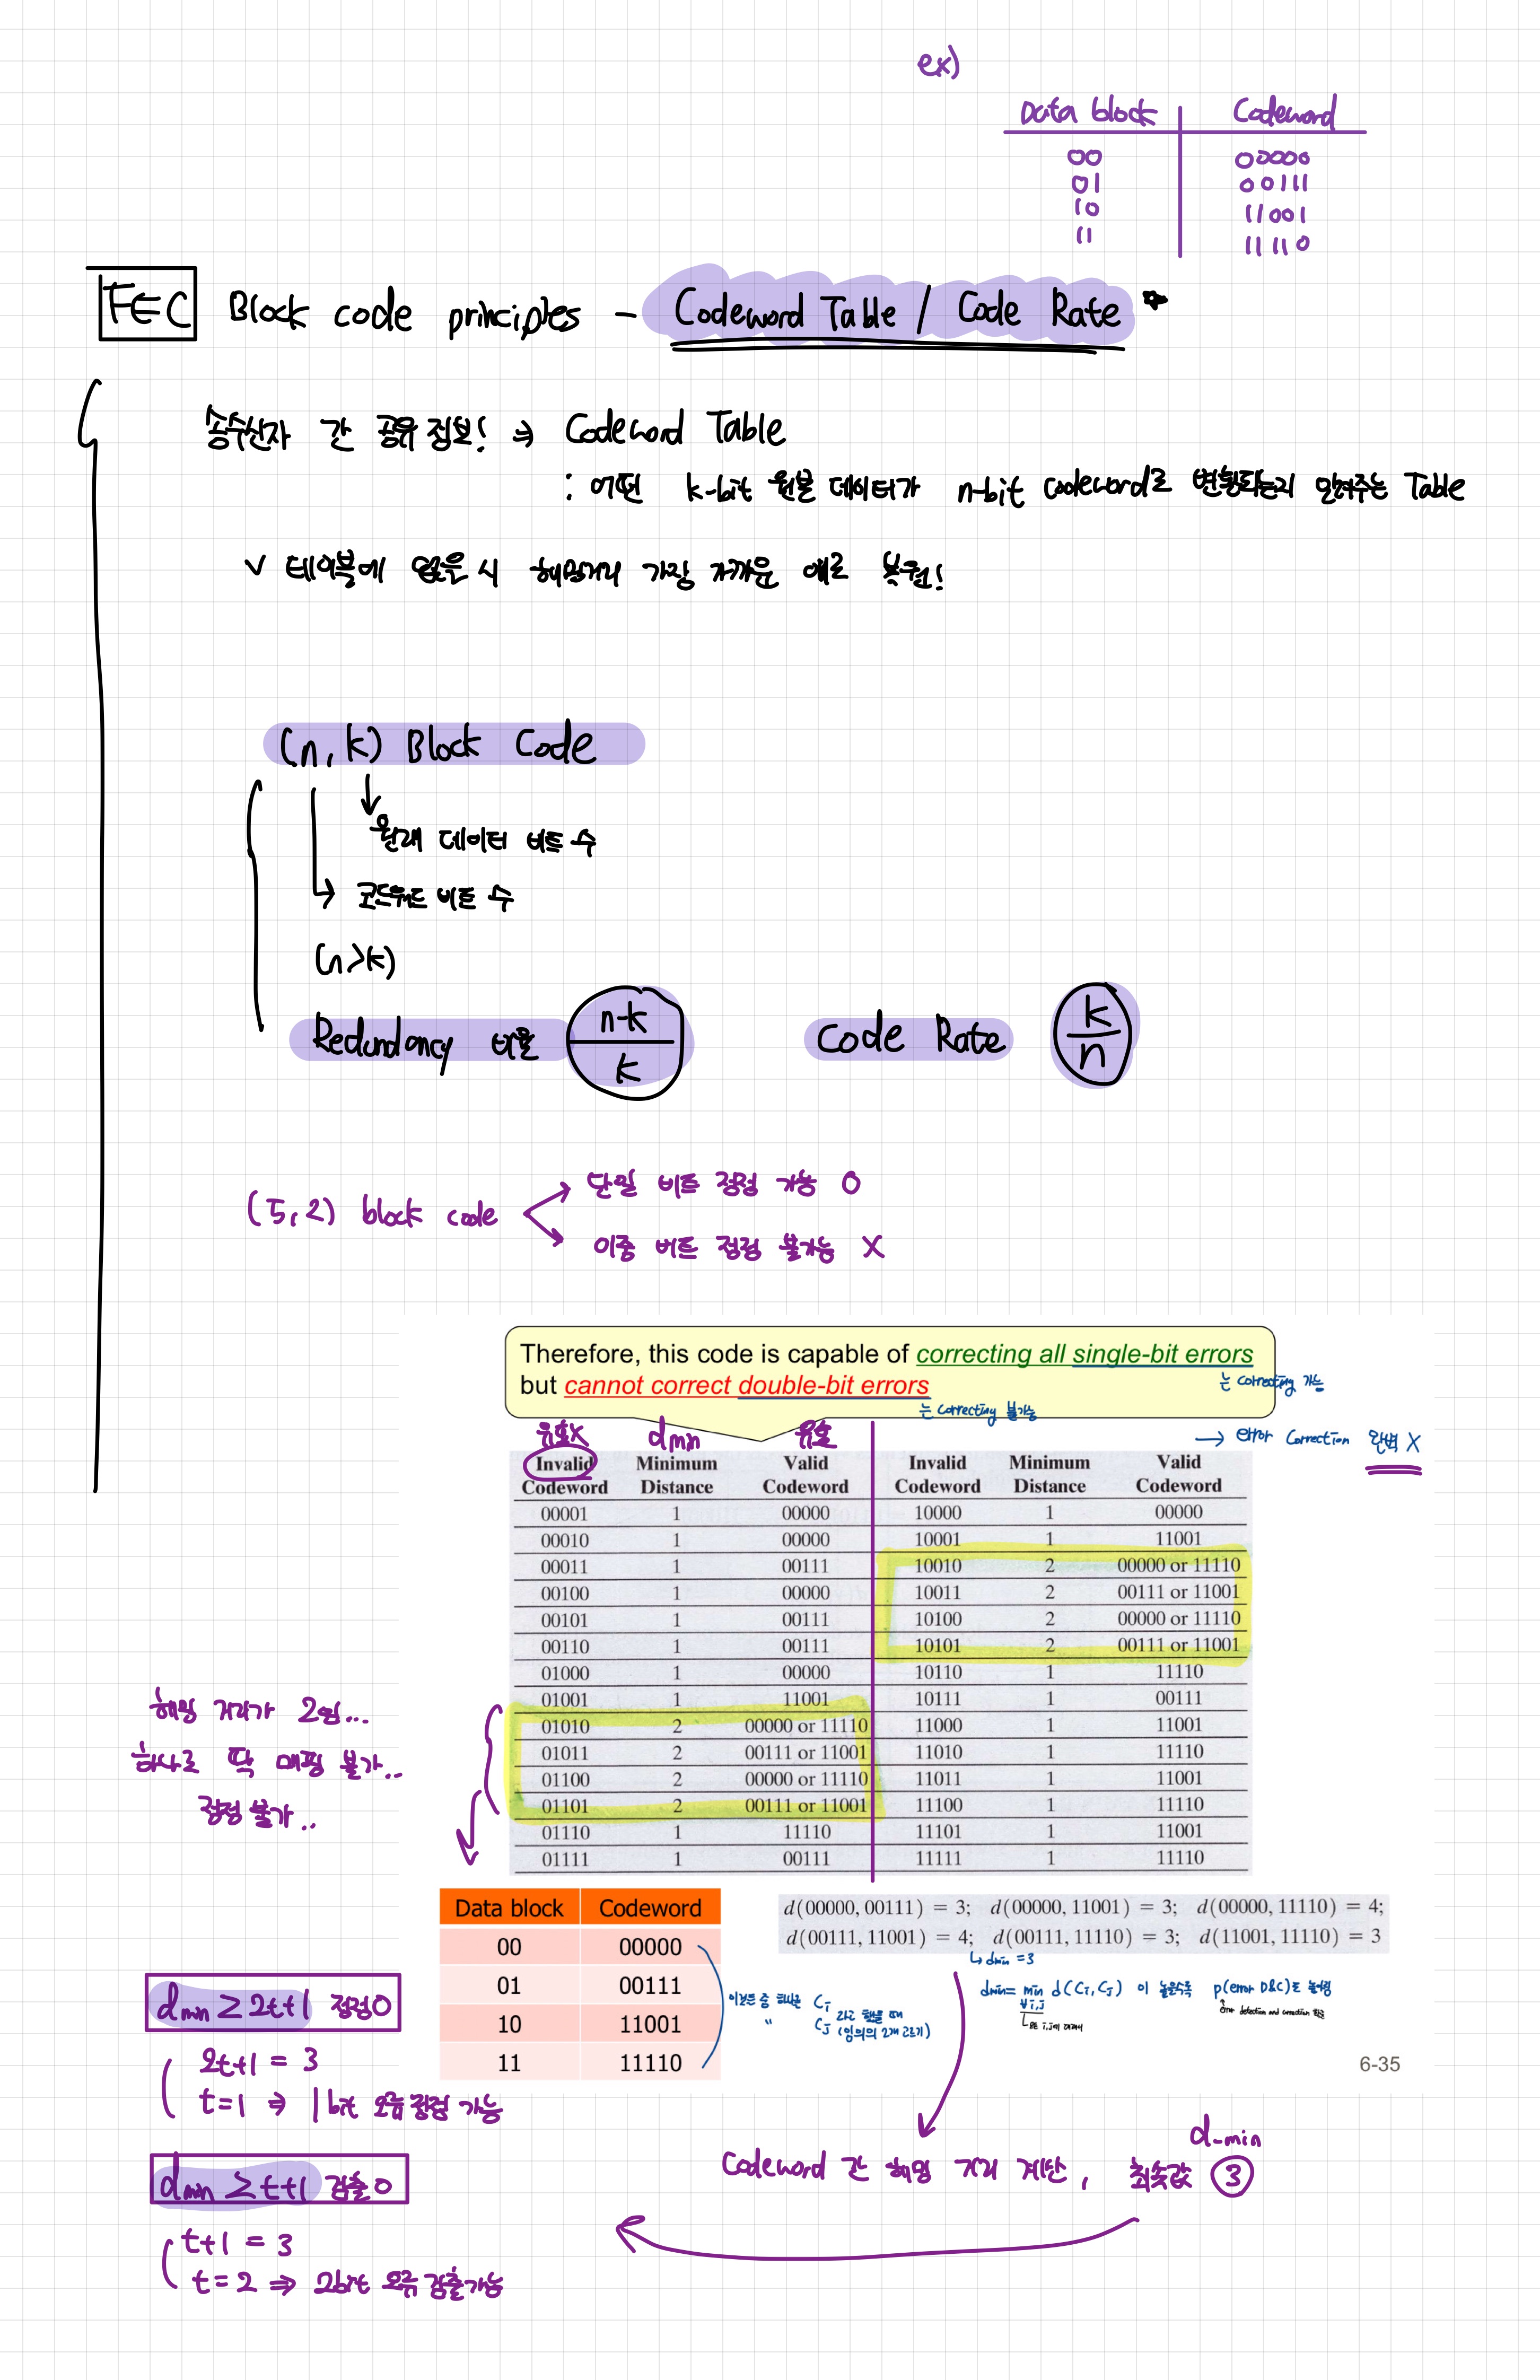 ex)
Data block Codeword
00 00000
01 00111
10 11001
11 11110
FEC Block code principles - Codeword Table / Code Rate
송수신자 간 공유 정보! ⇒ Codeword Table
: 어떤 k-bit 원본 데이터가 n-bit codeword로 변환되는지 알려주는 Table
✓ 테이블에 없을 시 해밍거리 가장 가까운 애로 복원!
(n, k) Block Code
원래 데이터 비트 수
코드워드 비트 수
(n>k)
Redundancy 비율 n-k / k Code Rate k / n
(5, 2) block code
단일 비트 정정 가능 O
이중 비트 정정 불가능 X
Therefore, this code is capable of correcting all single-bit errors
는 correcting 가능
but cannot correct double-bit errors
는 correcting 불가능
→ error correction 완벽 X
유효X dmin 유효
Invalid Codeword Minimum Distance Valid Codeword Invalid Codeword Minimum Distance Valid Codeword
00001 1 00000 10000 1 00000
00010 1 00000 10001 1 11001
00011 1 00111 10010 2 00000 or 11110
00100 1 00000 10011 2 00111 or 11001
00101 1 00111 10100 2 00000 or 11110
00110 1 00111 10101 2 00111 or 11001
01000 1 00000 10110 1 11110
01001 1 11001 10111 1 00111
01010 2 00000 or 11110 11000 1 11001
01011 2 00111 or 11001 11010 1 11110
01100 2 00000 or 11110 11011 1 11001
01101 2 00111 or 11001 11100 1 11110
01110 1 11110 11101 1 11001
01111 1 00111 11111 1 11110
해밍 거리가 2임...
하나로 딱 매핑 불가..
정정 불가..
Data block Codeword
00 00000
01 00111
10 11001
11 11110
d(00000, 00111) = 3; d(00000, 11001) = 3; d(00000, 11110) = 4;
d(00111, 11001) = 4; d(00111, 11110) = 3; d(11001, 11110) = 3
↳ dmin = 3
dmin = min d(Ci, Cj) 이 높을수록 p(error D&C)도 높아짐
∀i,j
모든 i,j에 대해서
error detection and correction 확률
이것들 중 하나를 Ci
" Cj 라고 했을 때
(임의의 2개 고르기)
6-35
dmin ≥ 2t+1 정정O
2t+1 = 3
t=1 ⇒ 1bit 오류 정정 가능
dmin ≥ t+1 검출O
t+1 = 3
t=2 ⇒ 2bit 오류 검출가능
Codeword 간 해밍 거리 계산, 최솟값 3
d_min